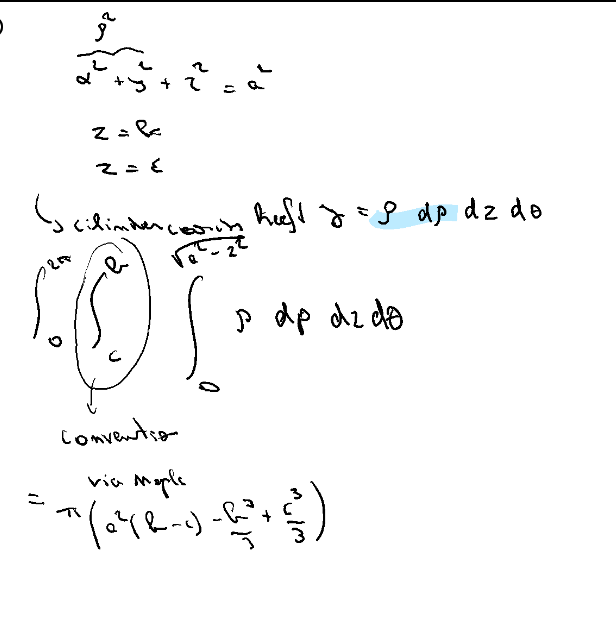 ρ²
x² + y² + z² = a²
z = b
z = c
↳ cilindercoördn heeft J = ρ dρ dz dθ
∫₀^{2π} ∫_c^b ∫₀^{√(a²-z²)} ρ dρ dz dθ
conventie
via maple
= π(a²(b-c) - b³/3 + c³/3)